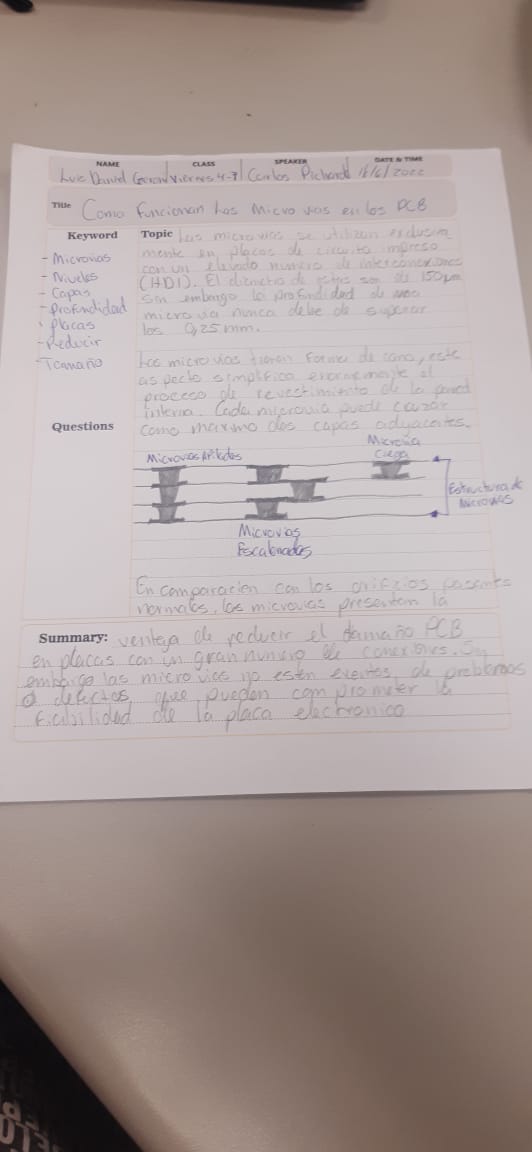 NAME CLASS SPEAKER DATE & TIME
Luis Daniel Viernes 4-7 Carlos Pichardo /6/2022
Title Como funcionan las Micro vias en los PCB
Keyword
- Microvias
- Niveles
- Capas
- Profundidad
- Placas
- Reducir
- Tamaño
Topic Las microvias se utilizan exclusiva
mente en placas de circuito impreso
con un elevado numero de interconexiones
(HDI). El diametro de estas son de 150 µm
sin embargo la profundidad de una
micro via nunca debe de superar
los 0,25 mm.
Las microvias tienen forma de cono, este
aspecto simplifica enormemente el
proceso de revestimiento de la pared
interna. Cada microvia puede cruzar
como maximo dos capas adyacentes.
Questions
Microvias Apiladas
Microvia
Ciega
Estructura de
Microvias
Microvias
Escalonadas
En comparacion con los orificios pasantes
normales, los microvias presentan la
Summary: ventaja de reducir el tamaño PCB
en placas con un gran numero de conexiones. Sin
embargo las micro vias no esten exentos de problemas
o defectos que pueden comprometer la
fiabilidad de la placa electronica